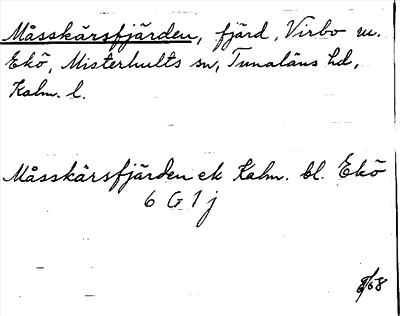 Måsskärsfjärden, fjärd, Virbo m.
Ekö, Misterhults sn, Tunaläns hd,
Kalm. l.
Måsskärsfjärden ek Kalm. bl. Ekö
6 G 1 j